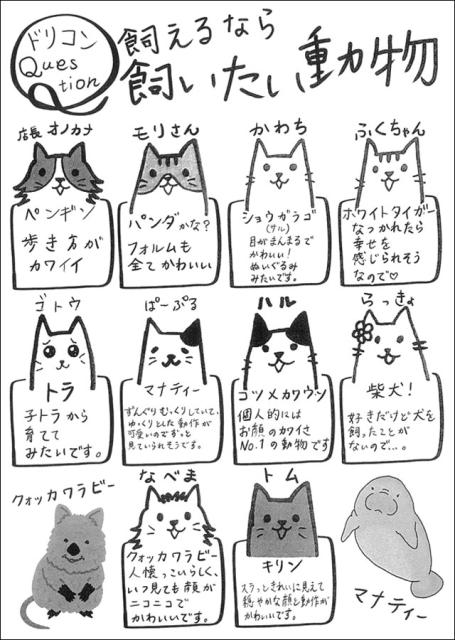 ドリコン
Ques
tion
飼えるなら
飼いたい動物
店長 オノカナ
ペンギン
歩き方が
カワイイ
モリさん
パンダかな?
フォルムも
全てかわいい
かわち
ショウガラゴ
(サル)
目がまんまるで
かわいい!
ぬいぐるみ
みたいです。
ふくちゃん
ホワイトタイガー
なつかれたら
幸せを
感じられそう
なので♡
ゴトウ
トラ
子トラから
育てて
みたいです。
ぱーぷる
マナティー
ずんぐりむっくりしていて、
ゆっくりとした動作が
可愛いのでずっと
見ていられそうです。
ハル
コツメカワウソ
個人的には
お顔のカワイさ
No.1の動物です
らっきょ
柴犬!
好きだけど犬を
飼ったことが
ないので…。
クォッカワラビー
なべま
クォッカワラビー
人懐っこいらしく、
いつ見ても顔が
ニコニコで
かわいいです。
トム
キリン
スラっときれいに見えて
穏やかな顔と動作が
かわいいです。
マナティー